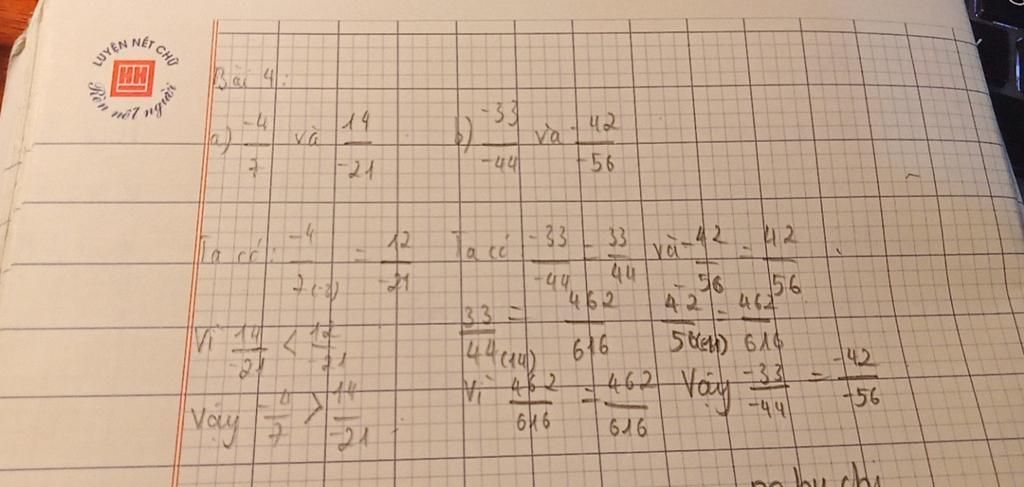 LUYỆN NÉT CHỮ
HH
Rèn nết người
Bài 4:
a) -4/7 và 14/-21 b) -33/-44 và -42/-56
Ta có: -4/7(-3) = 12/-21 Ta có -33/-44 = 33/44 và -42/-56 = 42/56
Vì 14/-21 < 12/-21 33/44(14) = 462/616 42/56(11) = 462/616
Vậy -4/7 > 14/-21 Vì 462/616 = 462/616 Vậy -33/-44 = -42/-56